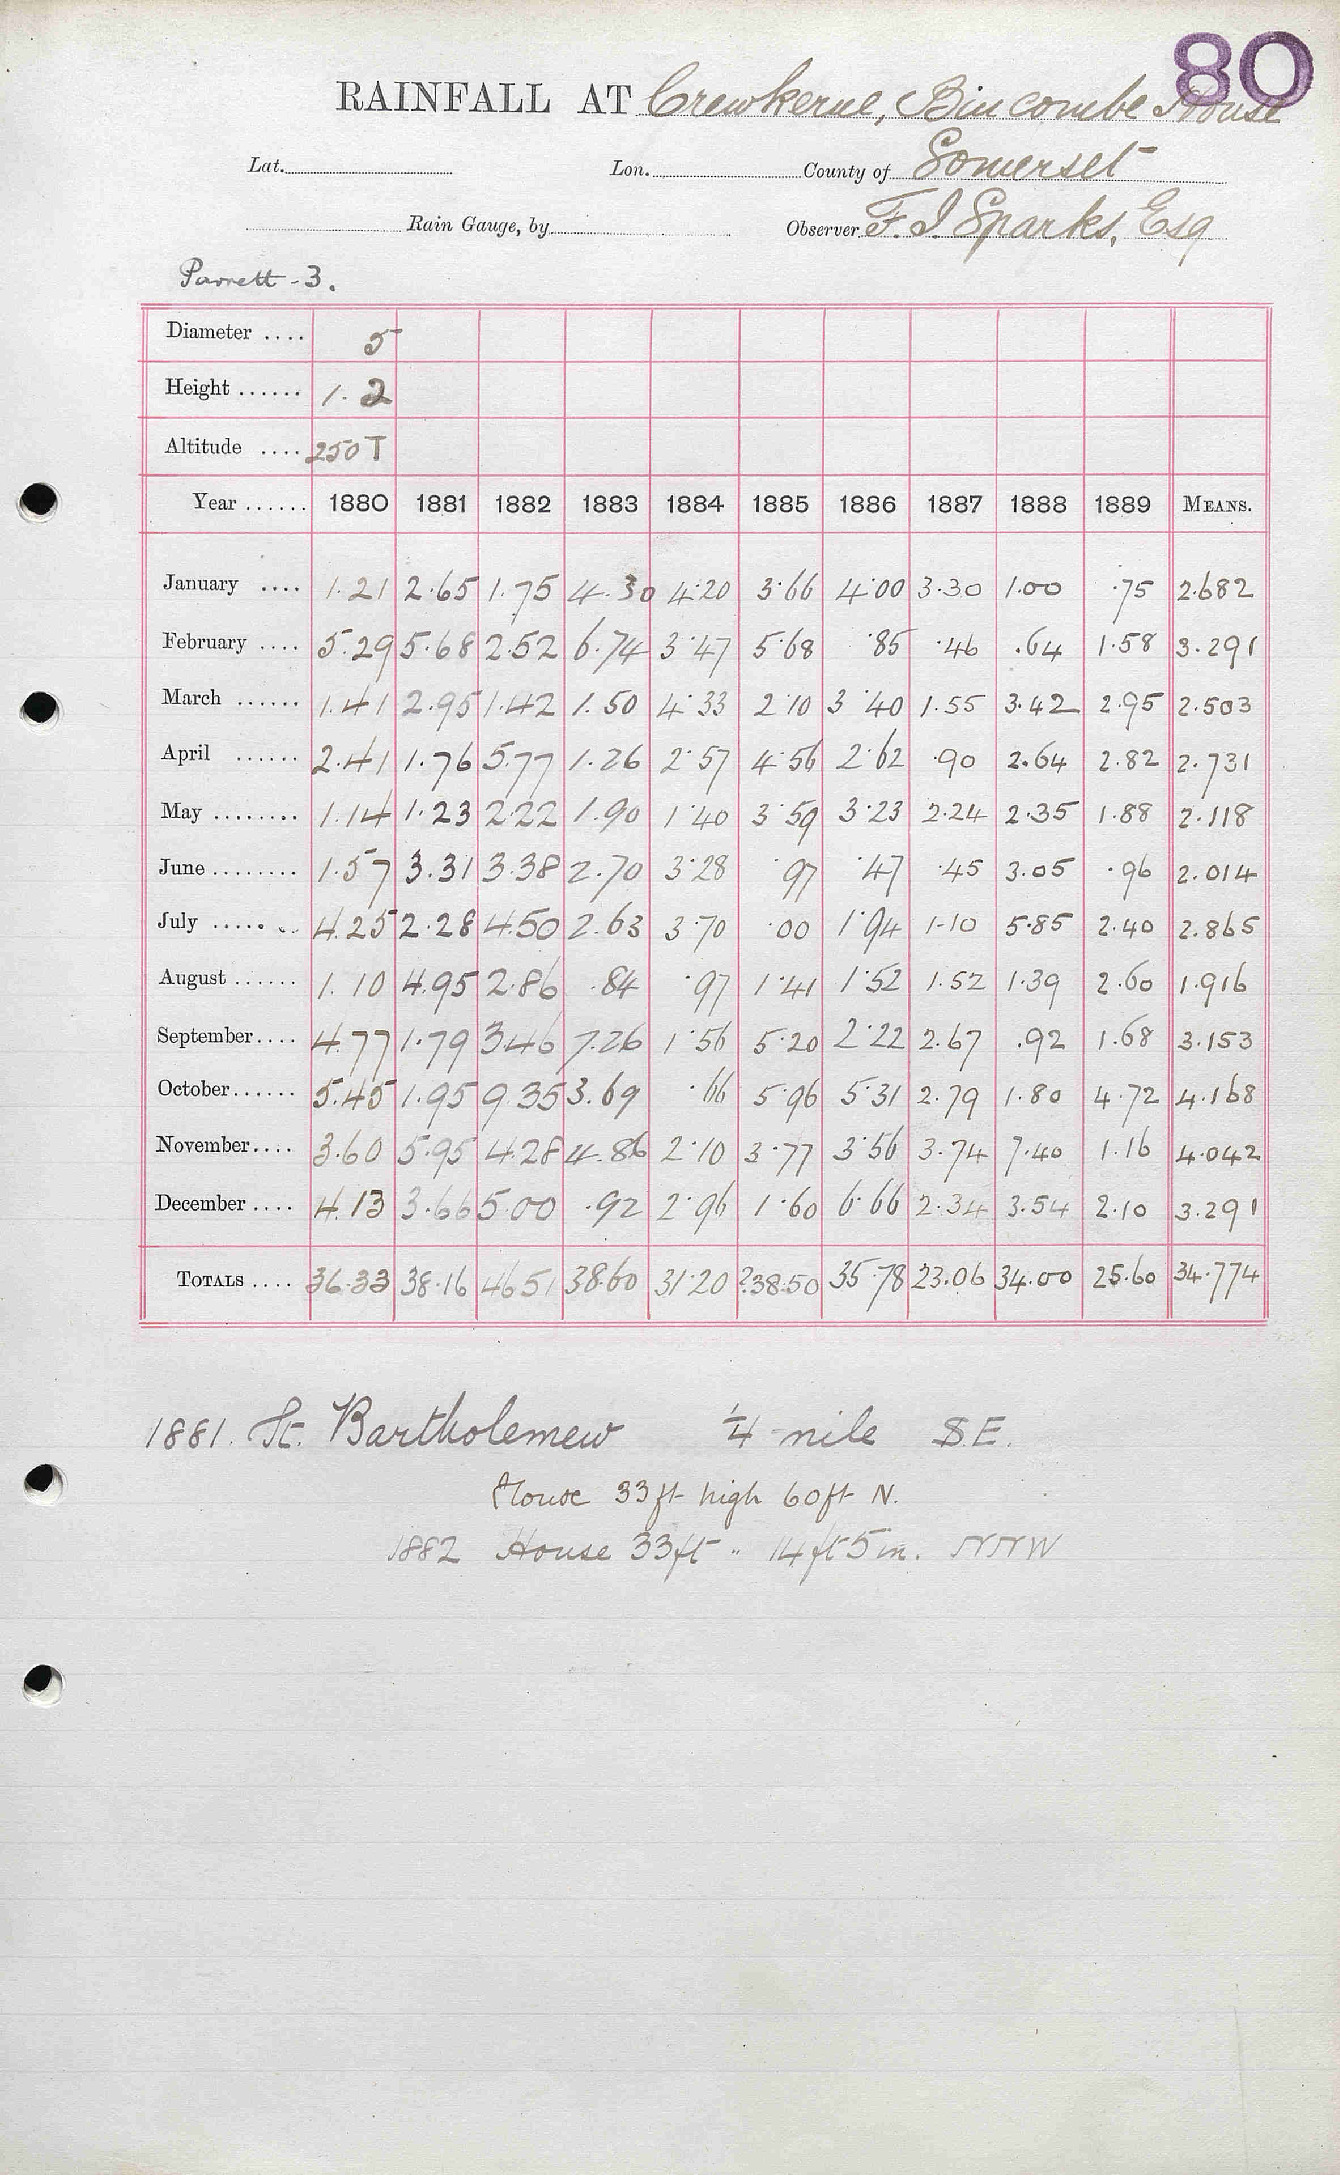 80
RAINFALL AT Crewkerne, Bincombe House
Lat. Lon. County of Somerset
Rain Gauge, by Observer F. J. Sparks, Esq
Parrett - 3.
Diameter .... 5
Height ...... 1.2
Altitude .... 250 T
Year ...... 1880 1881 1882 1883 1884 1885 1886 1887 1888 1889 MEANS.
January .... 1.21 2.65 1.75 4.30 4.20 3.66 4.00 3.30 1.00 .75 2.682
February .... 5.29 5.68 2.52 6.74 3.47 5.68 .85 .46 .64 1.58 3.291
March ...... 1.41 2.95 1.42 1.50 4.33 2.10 3.40 1.55 3.42 2.95 2.503
April ...... 2.41 1.76 5.77 1.26 2.57 4.56 2.62 .90 2.64 2.82 2.731
May ........ 1.14 1.23 2.22 1.90 1.40 3.59 3.23 2.24 2.35 1.88 2.118
June ........ 1.57 3.31 3.38 2.70 3.28 .97 .47 .45 3.05 .96 2.014
July ........ 4.25 2.28 4.50 2.63 3.70 .00 1.94 1.10 5.85 2.40 2.865
August ...... 1.10 4.95 2.86 .84 .97 1.41 1.52 1.52 1.39 2.60 1.916
September.... 4.77 1.79 3.46 7.26 1.56 5.20 2.22 2.67 .92 1.68 3.153
October...... 5.45 1.95 9.35 3.69 .66 5.96 5.31 2.79 1.80 4.72 4.168
November.... 3.60 5.95 4.28 4.86 2.10 3.77 3.56 3.74 7.40 1.16 4.042
December .... 4.13 3.66 5.00 .92 2.96 1.60 6.66 2.34 3.54 2.10 3.291
TOTALS .... 36.33 38.16 46.51 38.60 31.20 ?38.50 35.78 23.06 34.00 25.60 34.774
1881. St. Bartholemew 1/4 mile S.E.
House 33 ft high 60 ft N.
1882 House 33 ft " 14 ft 5 in. NNW